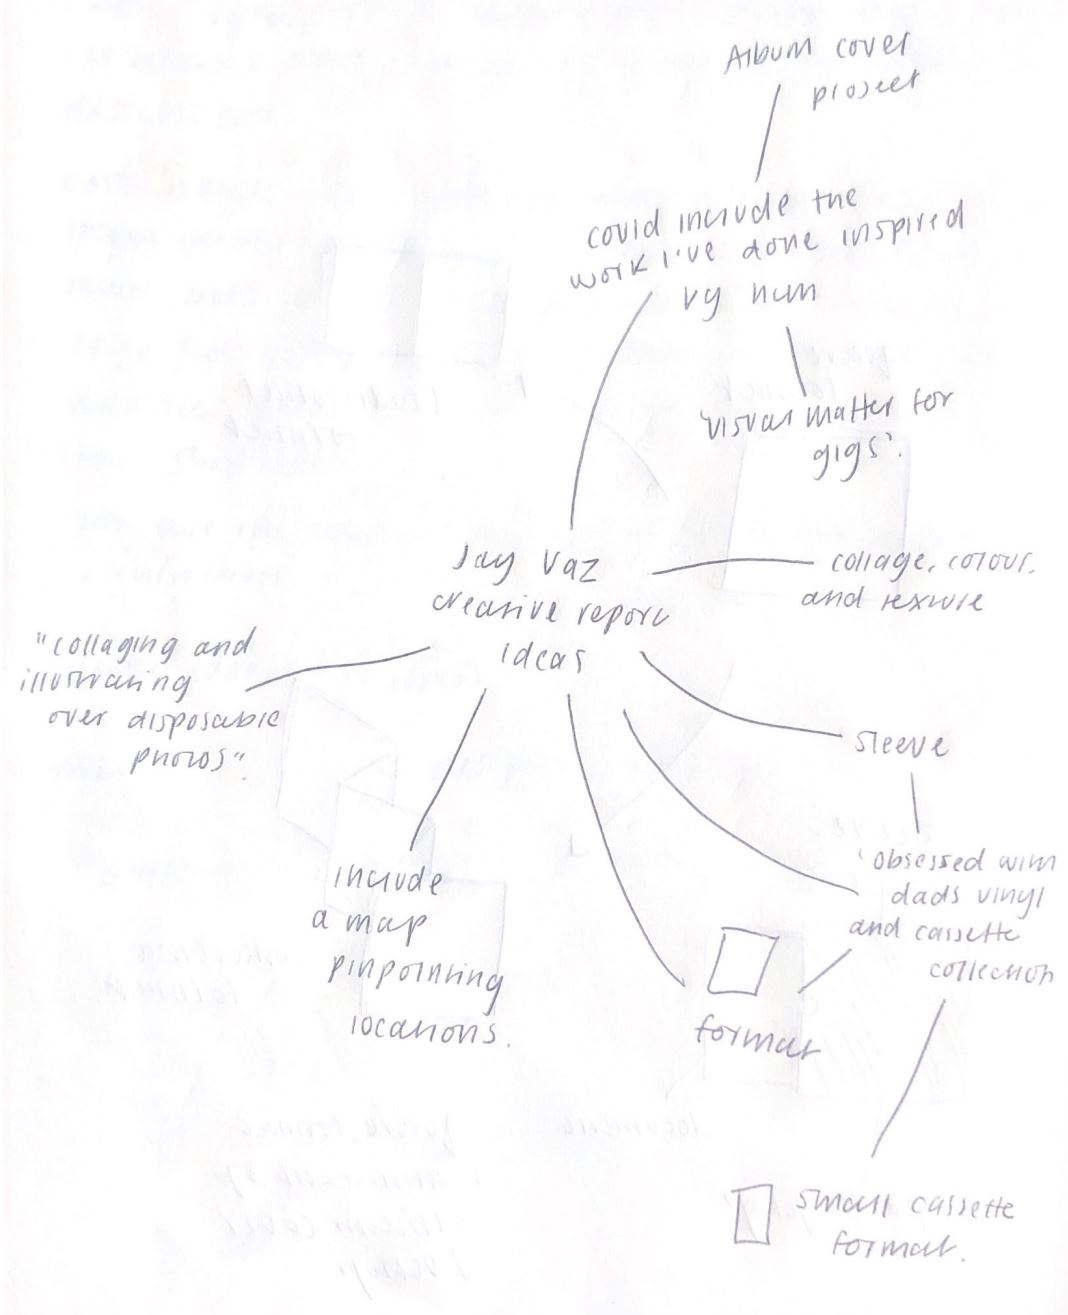 Album cover
project
could include the
work I've done inspired
by him
'visual matter for
gigs'.
Jay Vaz
creative report
ideas
collage, colour,
and texture
"collaging and
illustrating
over disposable
photos".
sleeve
'obsessed with
dads vinyl
and cassette
collection
include
a map
pinpointing
locations.
format
small cassette
format.